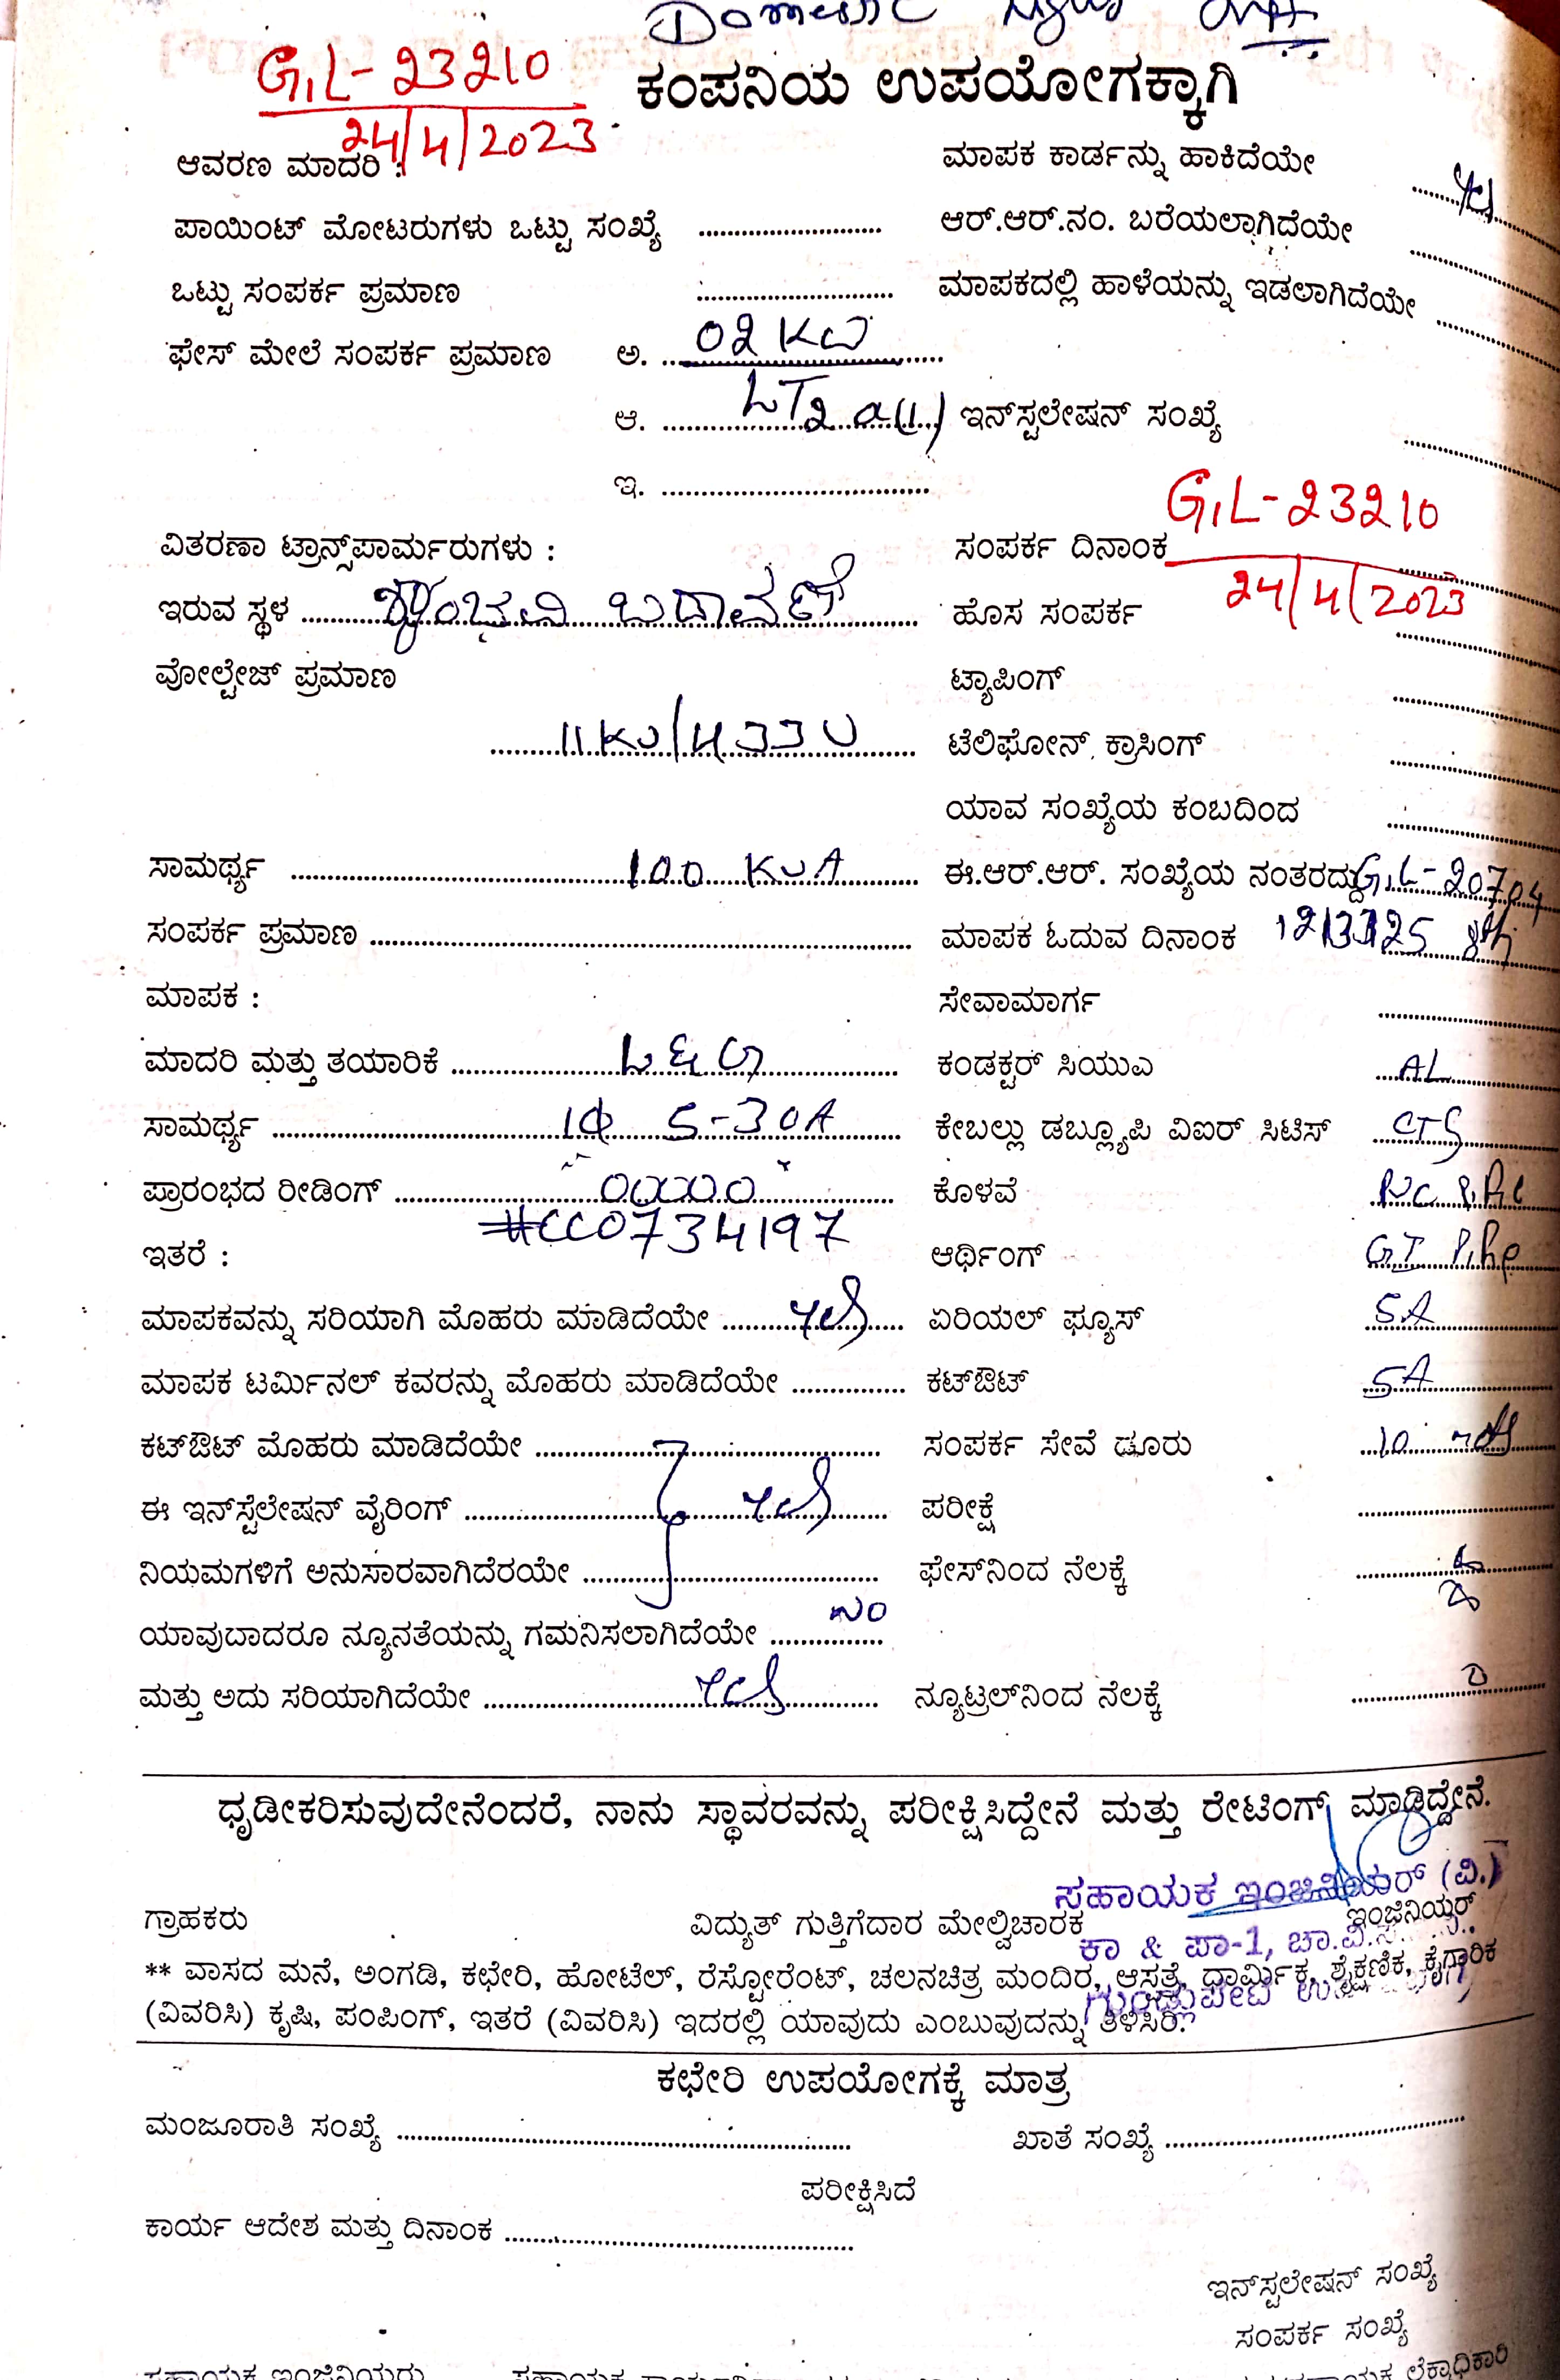 Domestic
GL-23210
24/4/2023
ಕಂಪನಿಯ ಉಪಯೋಗಕ್ಕಾಗಿ
ಆವರಣ ಮಾದರಿ : ಮಾಪಕ ಕಾರ್ಡನ್ನು ಹಾಕಿದೆಯೇ
ಪಾಯಿಂಟ್ ಮೋಟರುಗಳು ಒಟ್ಟು ಸಂಖ್ಯೆ ಆರ್.ಆರ್.ನಂ. ಬರೆಯಲಾಗಿದೆಯೇ
ಒಟ್ಟು ಸಂಪರ್ಕ ಪ್ರಮಾಣ ಮಾಪಕದಲ್ಲಿ ಹಾಳೆಯನ್ನು ಇಡಲಾಗಿದೆಯೇ
ಫೇಸ್ ಮೇಲೆ ಸಂಪರ್ಕ ಪ್ರಮಾಣ ಅ. 02 KW
ಆ. LT2 a(1) ಇನ್‌ಸ್ಟಲೇಷನ್ ಸಂಖ್ಯೆ
ಇ.
ವಿತರಣಾ ಟ್ರಾನ್ಸ್‌ಪಾರ್ಮರುಗಳು : ಸಂಪರ್ಕ ದಿನಾಂಕ GL-23210
24/4/2023
ಇರುವ ಸ್ಥಳ ಶಾಂಭವಿ ಬಡಾವಣೆ ಹೊಸ ಸಂಪರ್ಕ
ವೋಲ್ಟೇಜ್ ಪ್ರಮಾಣ ಟ್ಯಾಪಿಂಗ್
11KV/433V ಟೆಲಿಫೋನ್ ಕ್ರಾಸಿಂಗ್
ಯಾವ ಸಂಖ್ಯೆಯ ಕಂಬದಿಂದ
ಸಾಮರ್ಥ್ಯ 100 KVA ಈ.ಆರ್.ಆರ್. ಸಂಖ್ಯೆಯ ನಂತರದ್ದು GL-20704
ಸಂಪರ್ಕ ಪ್ರಮಾಣ ಮಾಪಕ ಓದುವ ದಿನಾಂಕ
ಮಾಪಕ : ಸೇವಾಮಾರ್ಗ
ಮಾದರಿ ಮತ್ತು ತಯಾರಿಕೆ L&G ಕಂಡಕ್ಟರ್ ಸಿಯುಎ AL
ಸಾಮರ್ಥ್ಯ 1Φ 5-30A ಕೇಬಲ್ಲು ಡಬ್ಲ್ಯೂಪಿ ವಿಐರ್ ಸಿಟಿಸ್ CTS
ಪ್ರಾರಂಭದ ರೀಡಿಂಗ್ 00000 ಕೊಳವೆ
#CC0734197
ಇತರೆ : ಆರ್ಥಿಂಗ್ GI Pipe
ಮಾಪಕವನ್ನು ಸರಿಯಾಗಿ ಮೊಹರು ಮಾಡಿದೆಯೇ yes ಏರಿಯಲ್ ಫ್ಯೂಸ್ 5A
ಮಾಪಕ ಟರ್ಮಿನಲ್ ಕವರನ್ನು ಮೊಹರು ಮಾಡಿದೆಯೇ ಕಟ್‌ಔಟ್ 5A
ಕಟ್‌ಔಟ್ ಮೊಹರು ಮಾಡಿದೆಯೇ ಸಂಪರ್ಕ ಸೇವೆ ಡೂರು 10
ಈ ಇನ್‌ಸ್ಟೆಲೇಷನ್ ವೈರಿಂಗ್ yes ಪರೀಕ್ಷೆ
ನಿಯಮಗಳಿಗೆ ಅನುಸಾರವಾಗಿದೆರಯೇ ಫೇಸ್‌ನಿಂದ ನೆಲಕ್ಕೆ
ಯಾವುದಾದರೂ ನ್ಯೂನತೆಯನ್ನು ಗಮನಿಸಲಾಗಿದೆಯೇ NO
ಮತ್ತು ಅದು ಸರಿಯಾಗಿದೆಯೇ yes ನ್ಯೂಟ್ರಲ್‌ನಿಂದ ನೆಲಕ್ಕೆ
ಧೃಡೀಕರಿಸುವುದೇನೆಂದರೆ, ನಾನು ಸ್ಥಾವರವನ್ನು ಪರೀಕ್ಷಿಸಿದ್ದೇನೆ ಮತ್ತು ರೇಟಿಂಗ್ ಮಾಡಿದ್ದೇನೆ.
ಸಹಾಯಕ ಇಂಜಿನಿಯರ್ (ವಿ.)
ಗ್ರಾಹಕರು ವಿದ್ಯುತ್ ಗುತ್ತಿಗೆದಾರ ಮೇಲ್ವಿಚಾರಕ ಇಂಜಿನಿಯರ್
ಕಾ & ಪಾ-1, ಚಾ.ವಿ.ಸ.
** ವಾಸದ ಮನೆ, ಅಂಗಡಿ, ಕಛೇರಿ, ಹೋಟೆಲ್, ರೆಸ್ಟೋರೆಂಟ್, ಚಲನಚಿತ್ರ ಮಂದಿರ, ಆಸ್ಪತ್ರೆ, ಧಾರ್ಮಿಕ, ಶೈಕ್ಷಣಿಕ, ಕೈಗಾರಿಕ
ಗುಂಡ್ಲುಪೇಟೆ
(ವಿವರಿಸಿ) ಕೃಷಿ, ಪಂಪಿಂಗ್, ಇತರೆ (ವಿವರಿಸಿ) ಇದರಲ್ಲಿ ಯಾವುದು ಎಂಬುವುದನ್ನು ತಿಳಿಸಿರಿ.
ಕಛೇರಿ ಉಪಯೋಗಕ್ಕೆ ಮಾತ್ರ
ಮಂಜೂರಾತಿ ಸಂಖ್ಯೆ ಖಾತೆ ಸಂಖ್ಯೆ
ಪರೀಕ್ಷಿಸಿದೆ
ಕಾರ್ಯ ಆದೇಶ ಮತ್ತು ದಿನಾಂಕ
ಇನ್‌ಸ್ಟಲೇಷನ್ ಸಂಖ್ಯೆ
ಸಂಪರ್ಕ ಸಂಖ್ಯೆ
ಸಹಾಯಕ ಇಂಜಿನಿಯರು ಲೆಕ್ಕಾಧಿಕಾರಿ